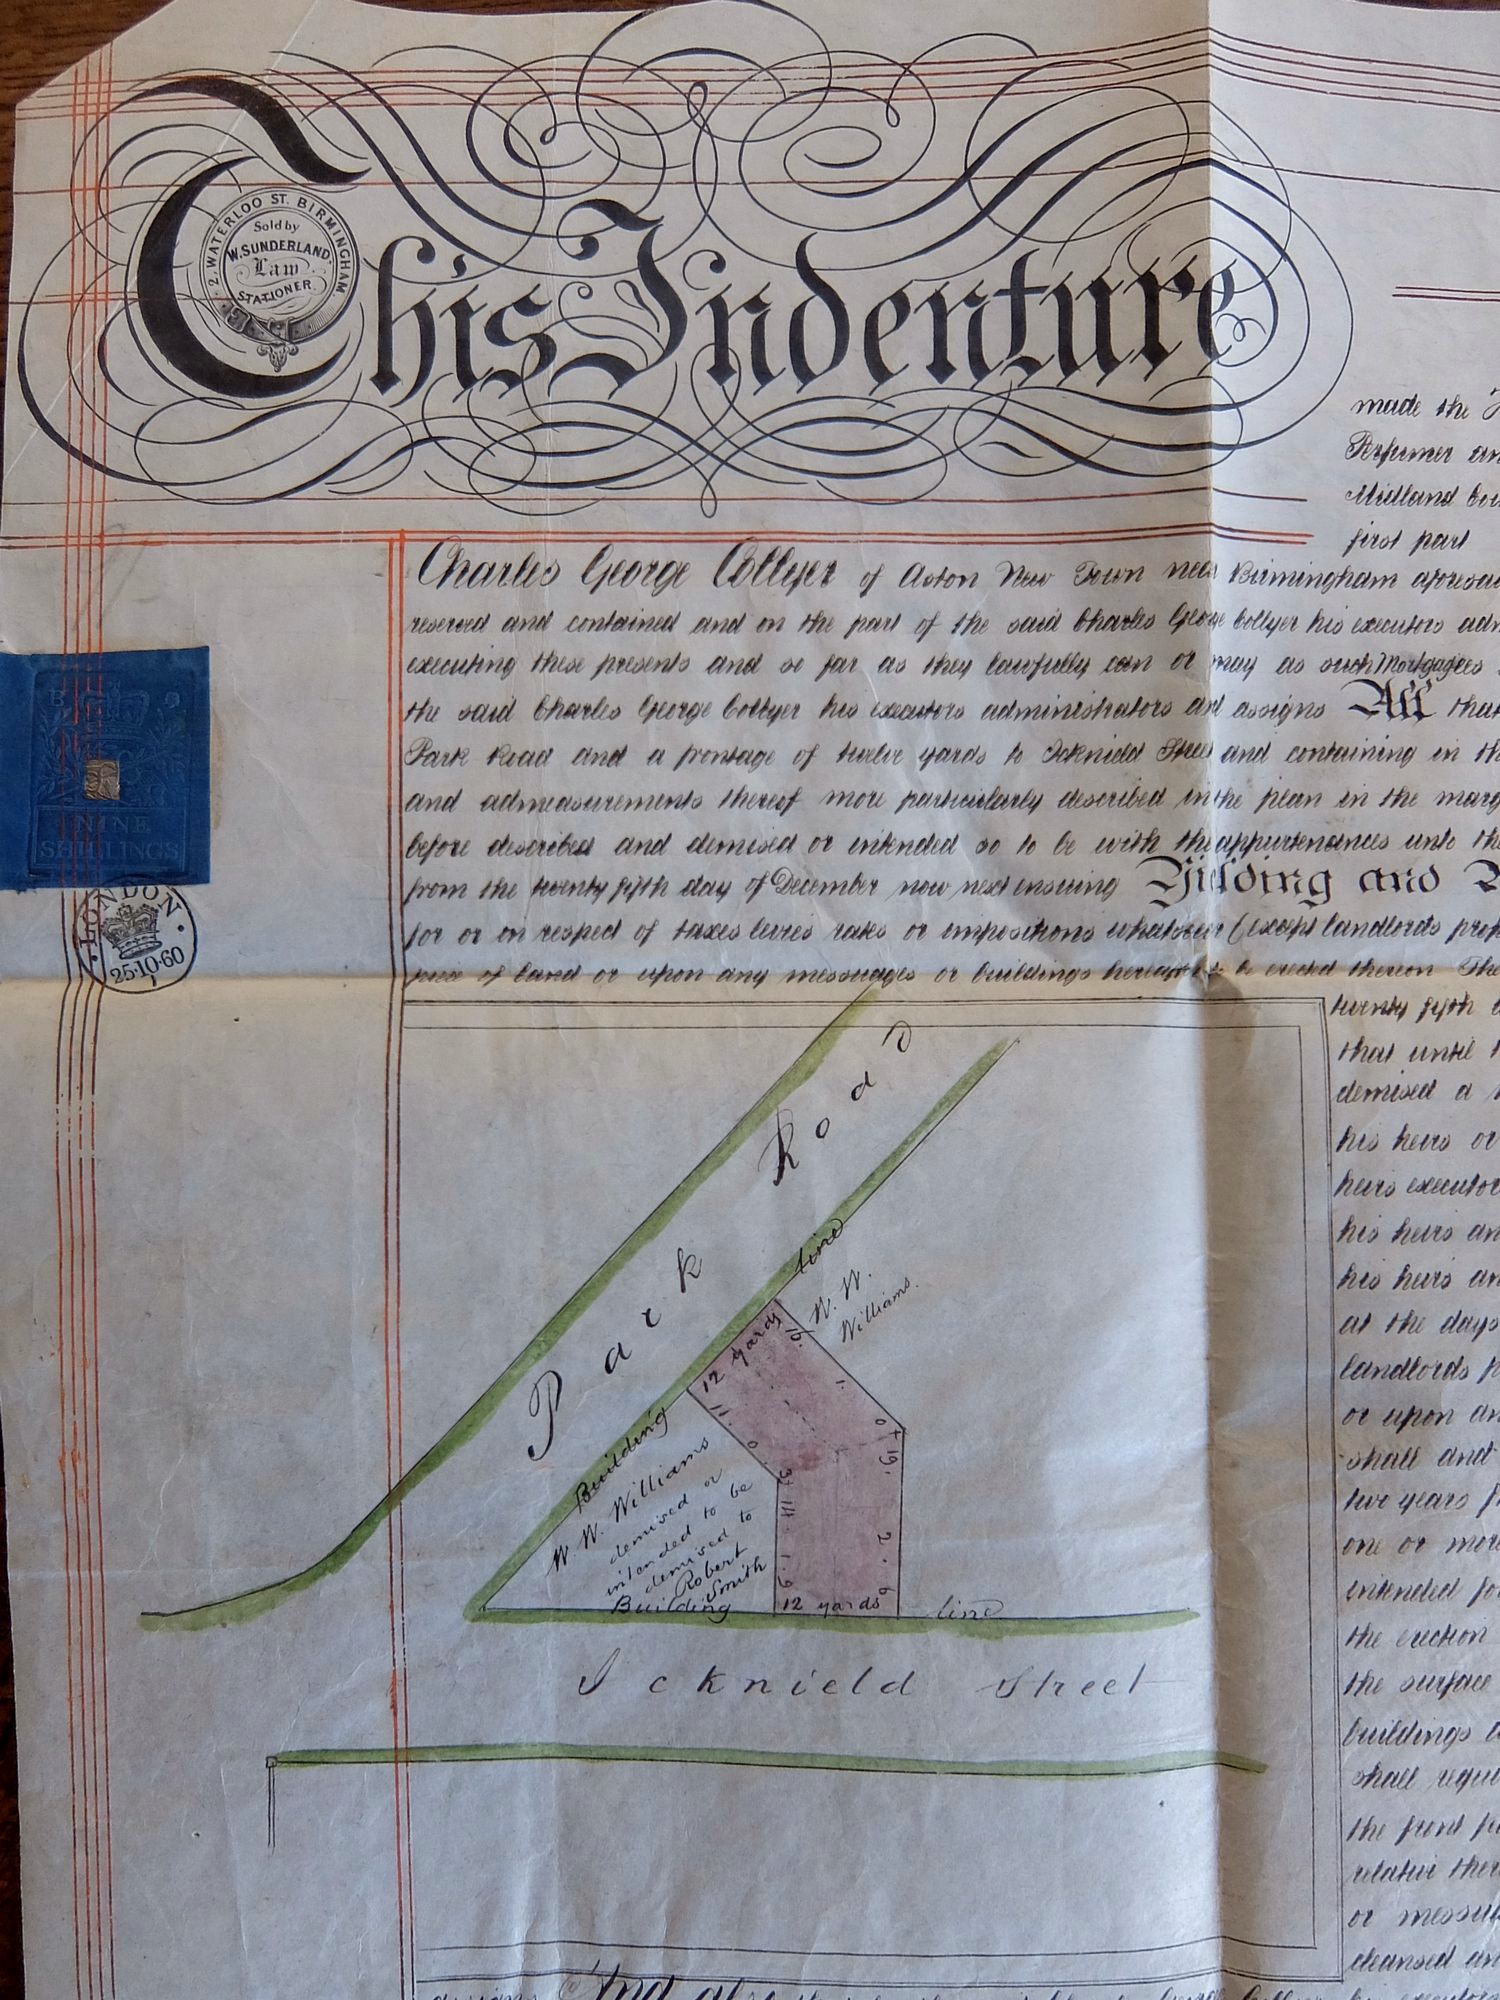 This Indenture
2, WATERLOO ST. BIRMINGHAM.
Sold by
W. SUNDERLAND
Law
STATIONER.
made the
Perfumer an
Midland Cou
first part
Charles George Collyer of Aston New Town near Birmingham aforesai
reserved and contained and on the part of the said Charles George Collyer his executors adm
executing these presents and so far as they lawfully can or may as such Mortgagees
the said Charles George Collyer his executors administrators and assigns All that
Park Road and a frontage of twelve yards to Icknield Street and containing in th
and admeasurements thereof more particularly described in the plan in the marg
before described and demised or intended so to be with the appurtenances unto the
from the twenty fifth day of December now next ensuing Yielding and
for or in respect of taxes levies rates or impositions whatsoever (except landlords prop
piece of land or upon any messuages or buildings hereafter to be erected thereon The
NINE
SHILLINGS
LONDON
25·10·60
twenty fifth d
that until t
demised a
his heirs or
heirs executor
his heirs an
his heirs an
at the days
landlords p
or upon an
shall and
two years f
one or more
intended fo
the erection
the surface
buildings
shall requi
the front
relative ther
or messu
cleansed an
Park Road
Building line
W. W. Williams.
12 yards
16. 1. 0
11. 0. 3
19. 2. 6
14. 1. 9
W. W. Williams
demised or
intended to be
demised to
Robert
Smith
Building 12 yards line
Icknield Street
And also